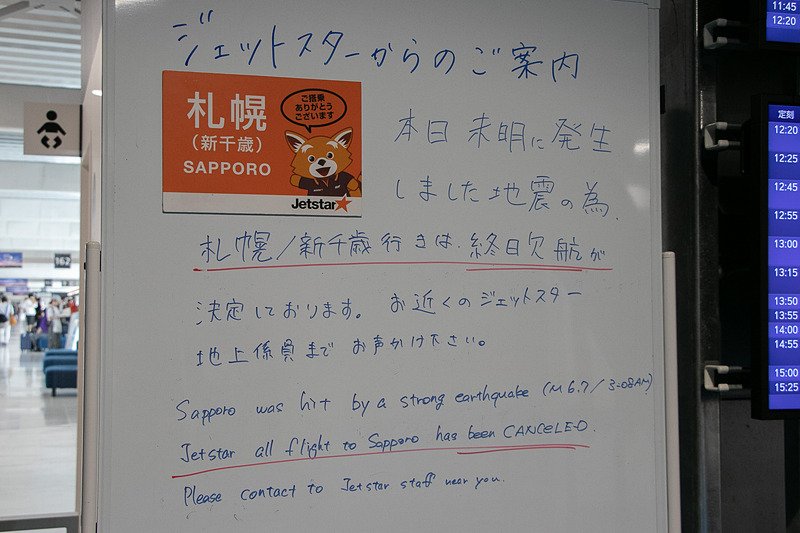 ジェットスターからのご案内
札幌
(新千歳)
SAPPORO
ご搭乗
ありがとう
ございます
Jetstar
本日未明に発生
しました地震の為、
札幌/新千歳行きは、終日欠航が
決定しております。お近くのジェットスター
地上係員までお声かけ下さい。
Sapporo was hit by a strong earthquake (M6.7/3:08AM)
Jetstar all flight to Sapporo has been CANCELED.
Please contact to Jetstar staff near you.
162
11:45
12:20
定刻
12:20
12:25
12:45
12:55
13:00
13:15
13:50
13:55
14:00
14:55
15:00
15:25